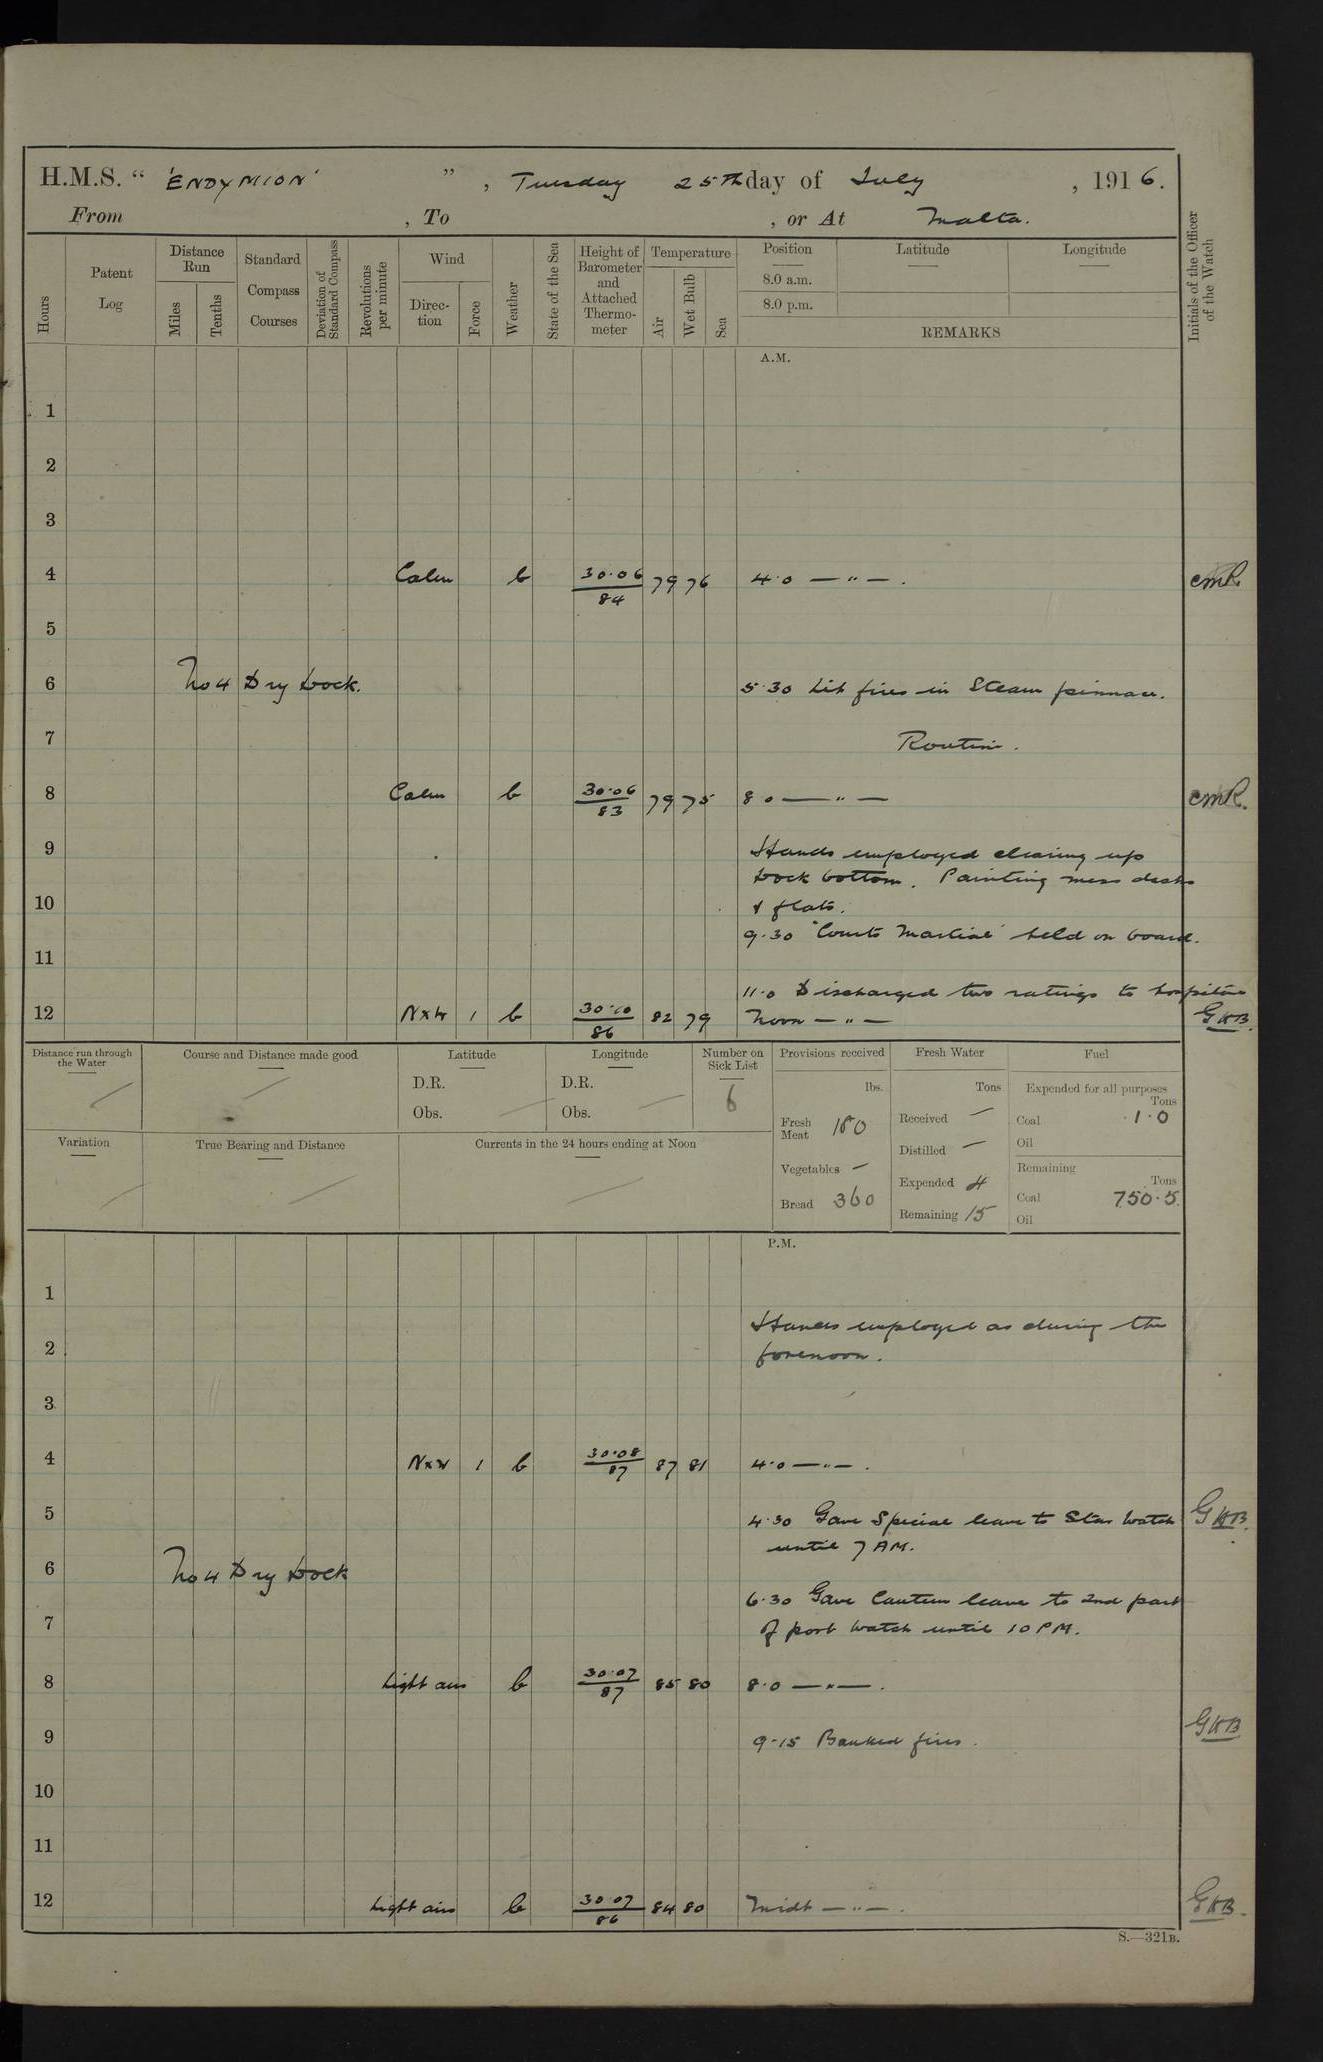 H.M.S. “ 'ENDYMION' ” , Tuesday 25th day of July , 1916.
From , To , or At Malta.
Hours
Patent Log
Distance Run
Miles
Tenths
Standard Compass Courses
Deviation of Standard Compass
Revolutions per minute
Wind
Direc-tion
Force
Weather
State of the Sea
Height of Barometer and Attached Thermo-meter
Temperature
Air
Wet Bulb
Sea
Position
Latitude
Longitude
8.0 a.m.
8.0 p.m.
REMARKS
Initials of the Officer of the Watch
A.M.
1
2
3
4 Calm b 30.06 79 76 4.0 — " — . CMR
84
5
6 No 4 Dry Dock. 5.30 Lit fires in Steam pinnace.
7 Routine.
8 Calm b 30.06 79 75 8.0 — " — CMR.
83
9 Hands employed clearing up
dock bottom. Painting mess decks
10 & flats.
9.30 'Courts Martial' held on board.
11
11.0 Discharged two ratings to hospital
12 NxW 1 b 30.10 82 79 Noon — " — GKB.
86
Distance run through the Water
Course and Distance made good
Latitude
D.R.
Obs.
Longitude
D.R.
Obs.
Number on Sick List
6
Provisions received
lbs.
Fresh Meat 180
Vegetables —
Bread 360
Fresh Water
Tons
Received —
Distilled —
Expended 4
Remaining 15
Fuel
Expended for all purposes
Tons
Coal 1.0
Oil
Remaining
Tons
Coal 750.5
Oil
Variation
True Bearing and Distance
Currents in the 24 hours ending at Noon
P.M.
1
Hands employed as during the
2 forenoon.
3
4 NxW 1 b 30.08 87 81 4.0 — " — .
87
5 4.30 Gave Special leave to Star watch GKB.
until 7 AM.
6 No 4 Dry Dock
6.30 Gave Canteen leave to 2nd part
7 of port watch until 10 PM.
8 Light airs b 30.07 85 80 8.0 — " — .
87
GKB
9 9.15 Banked fires.
10
11
12 Light airs b 30.07 84 80 Midt — " — . GKB.
86
S.—321B.